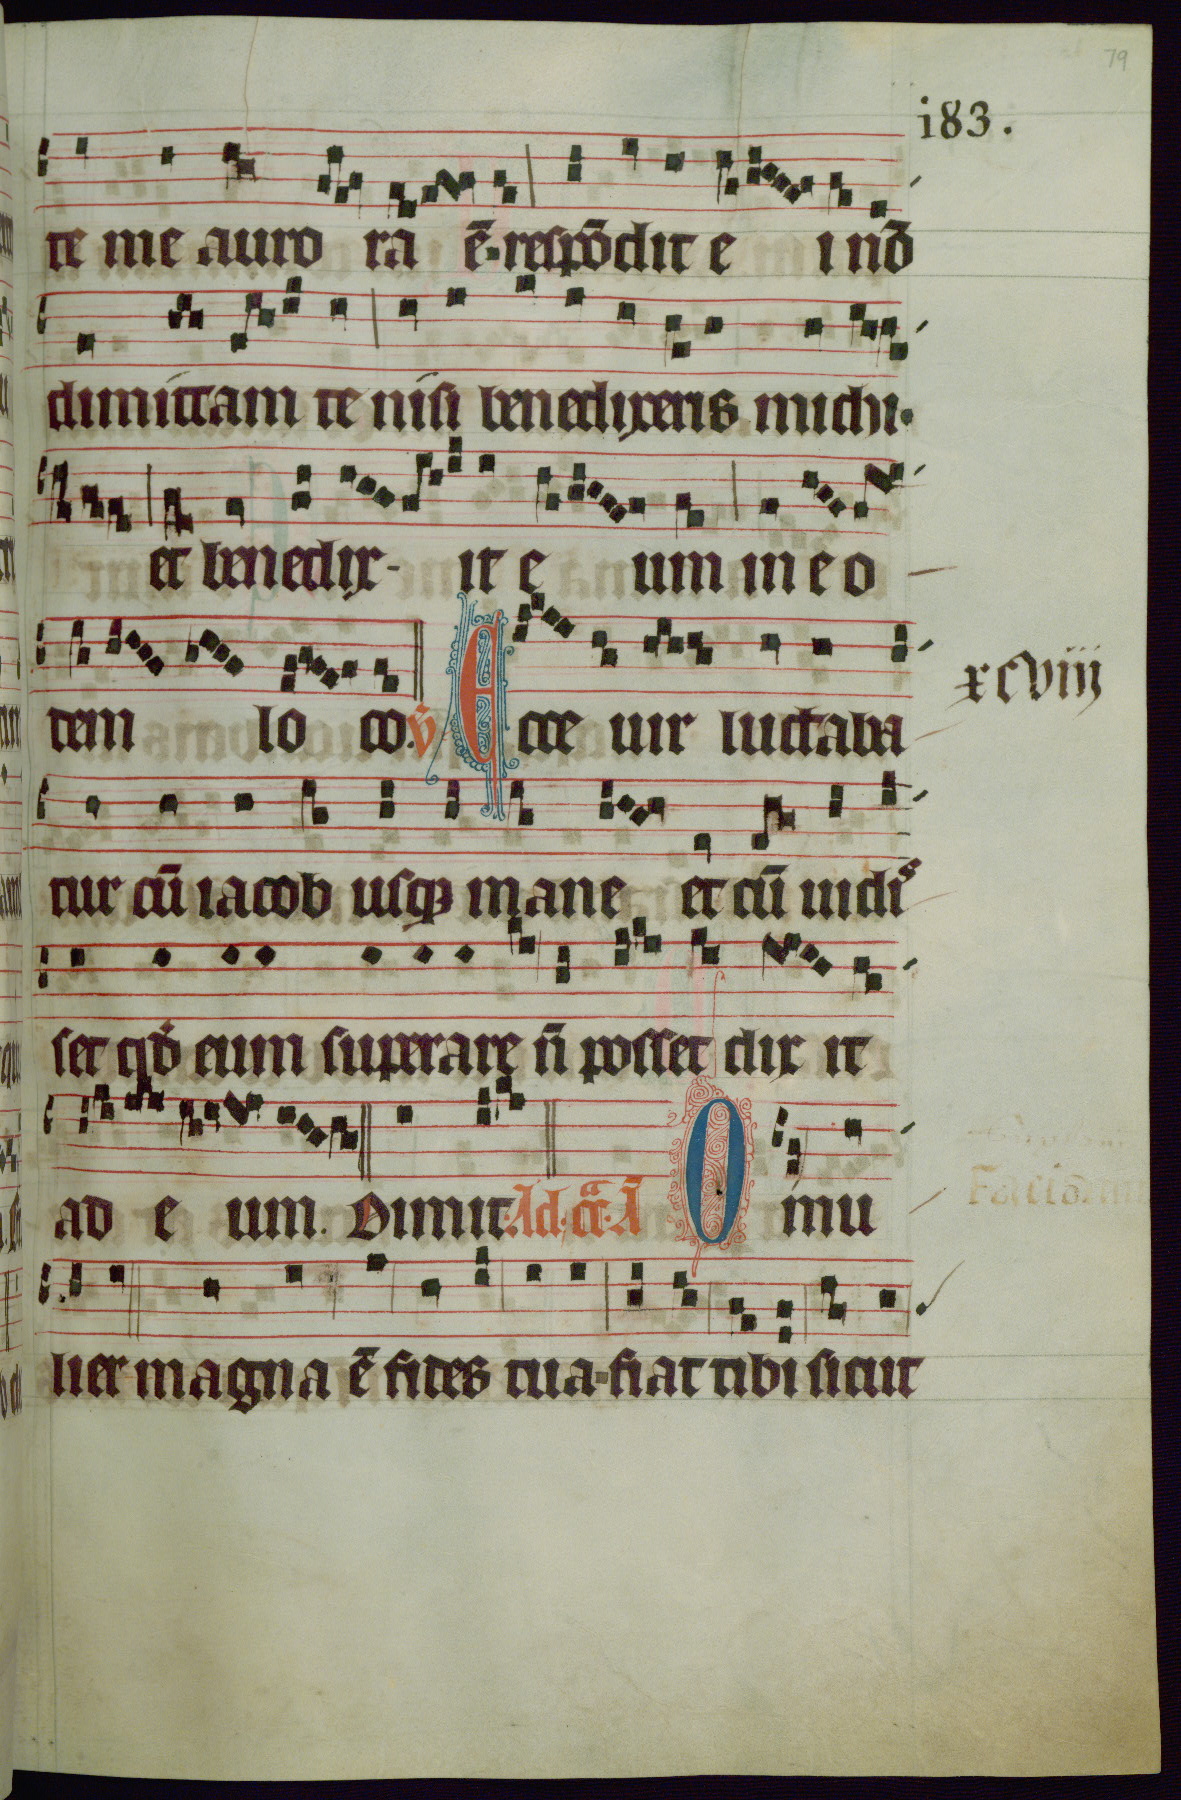 79
i83.
te me auro ra ē. respōdit e i nō
dimittam te nisi benedixeris michi.
et benedix- it e um in e o
tem lo co. v̄ Ecce uir luctaba
xcviii
tur cū iacob usqꝫ mane et cū uidis
set qđ eum superare n̄ posset dix it
ad e um. Dimit. Ad. cā. A O mu
lier magna ē fides tua. fiat tibi sicut